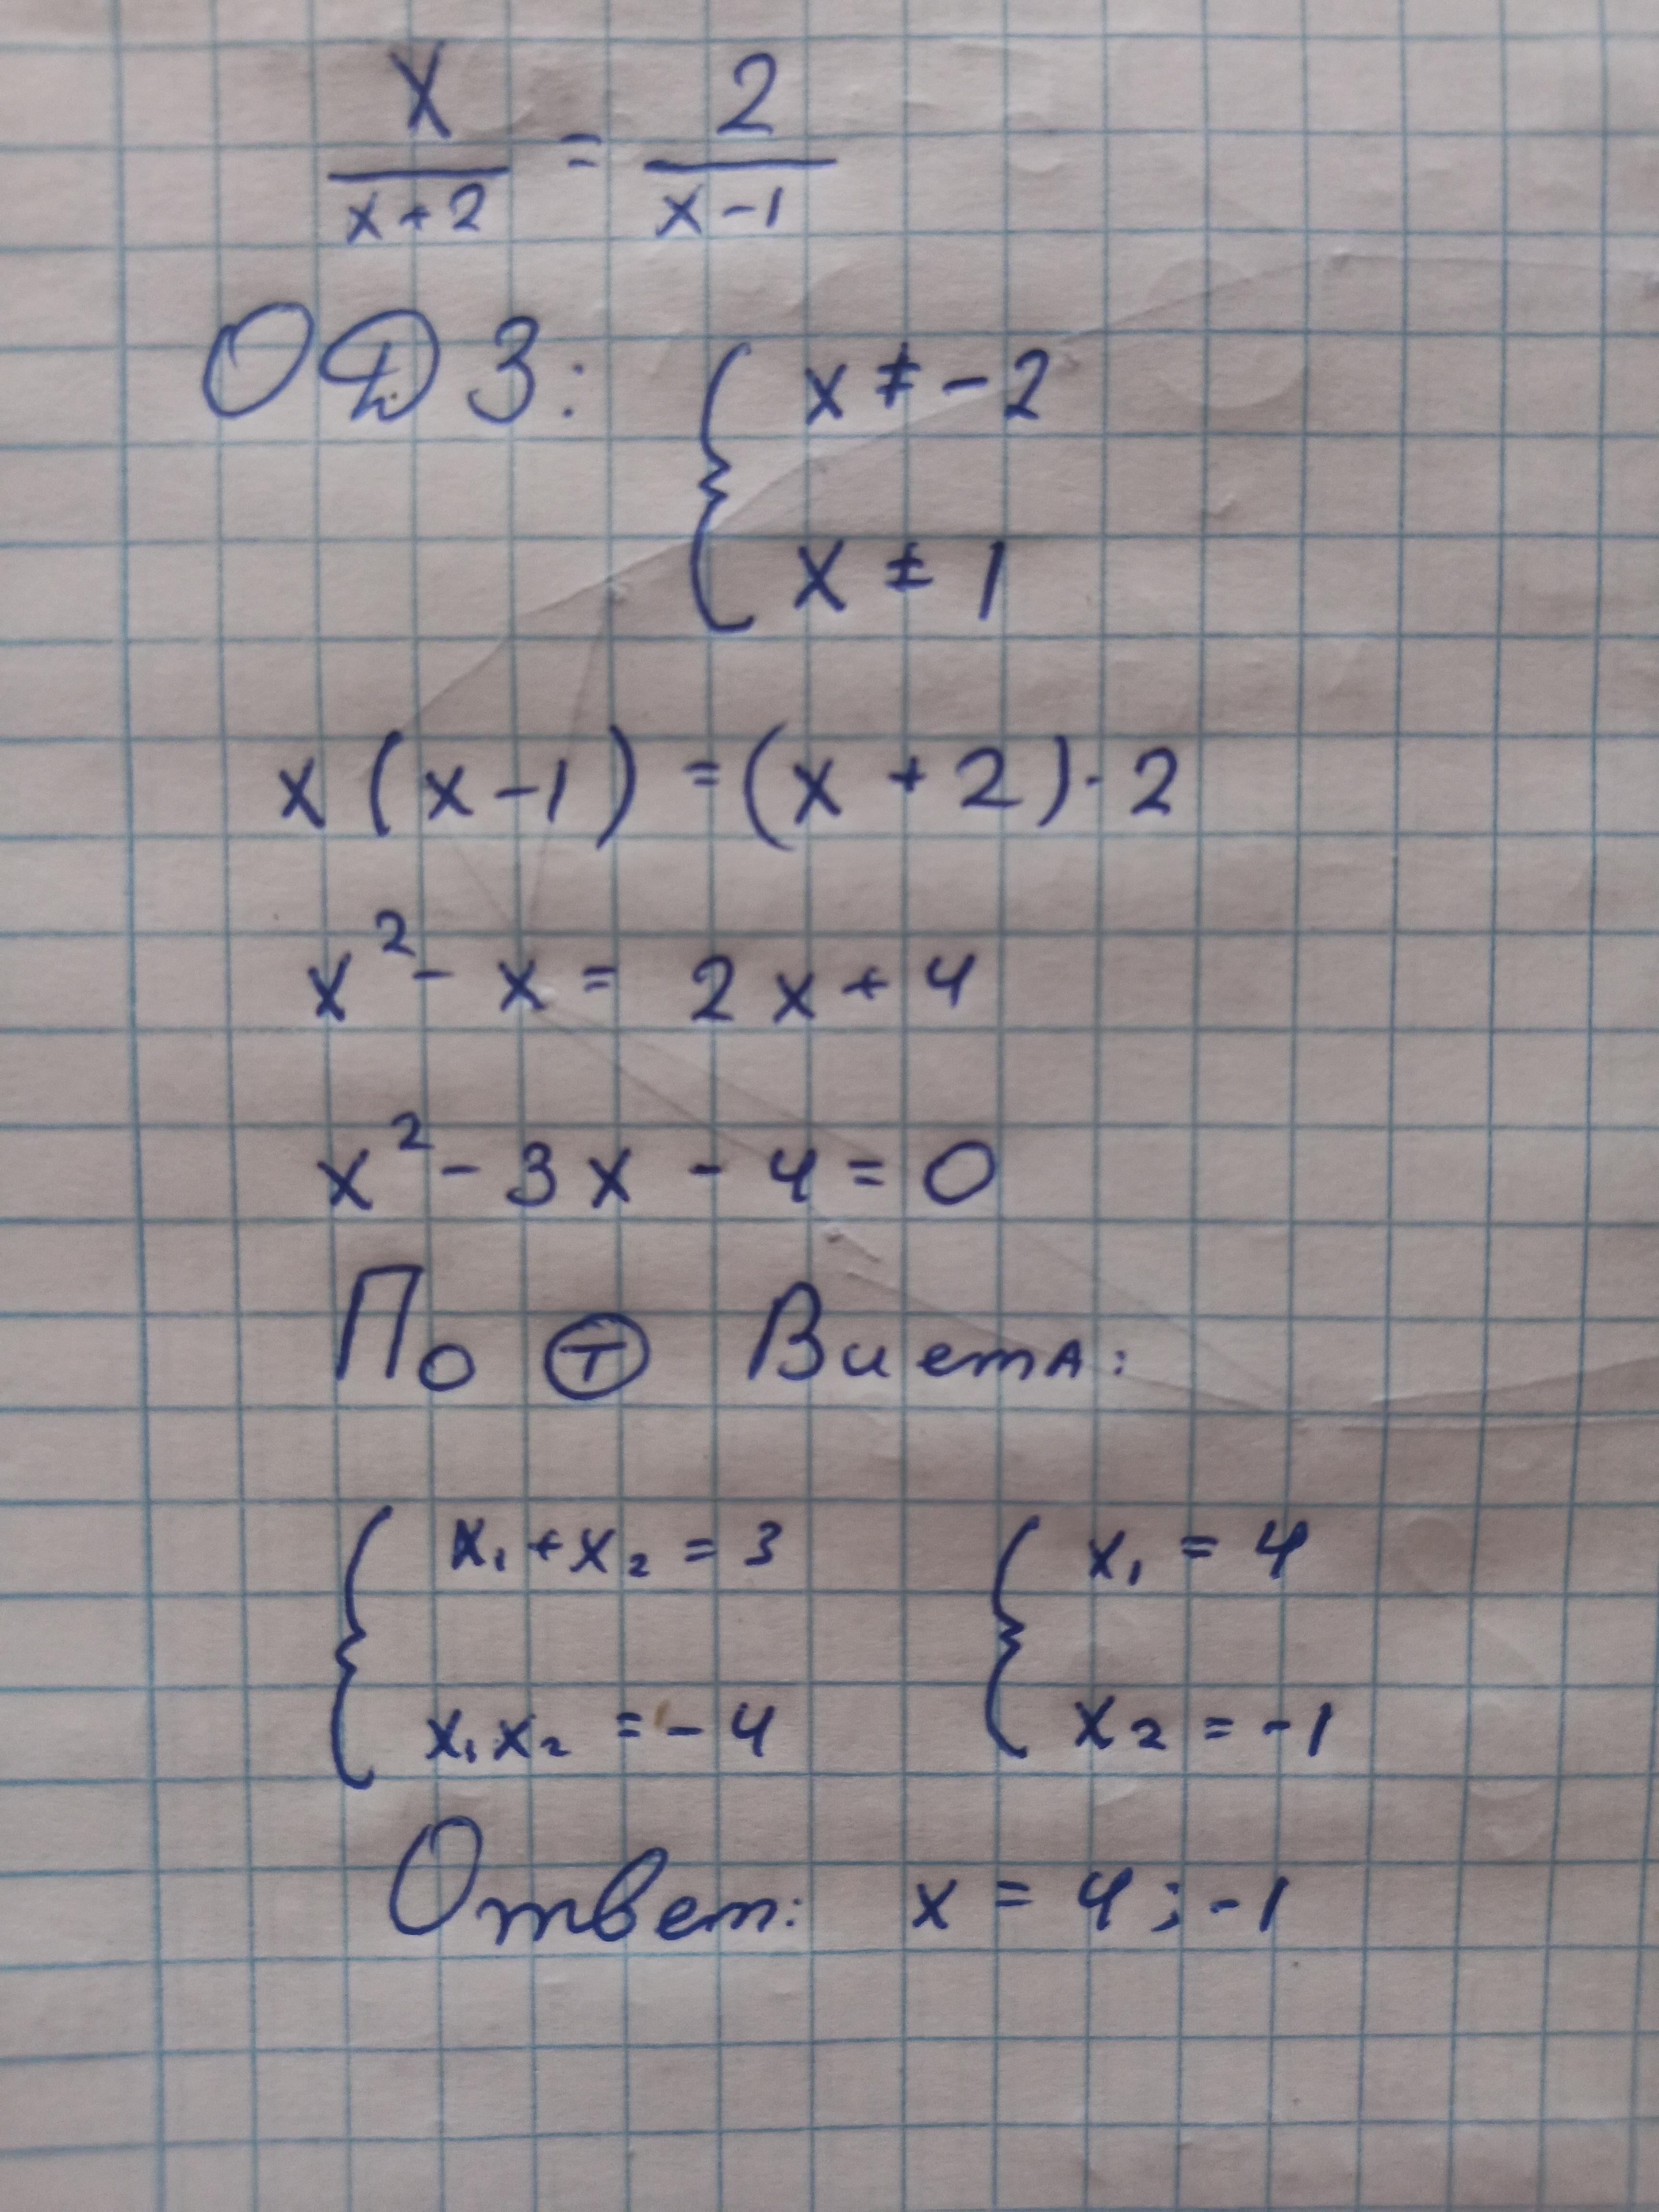 x/(x+2) = 2/(x-1)
ОДЗ: { x ≠ -2
x ≠ 1
x(x-1) = (x+2)·2
x² - x = 2x + 4
x² - 3x - 4 = 0
По Ⓣ Виета:
{ x₁ + x₂ = 3 { x₁ = 4
x₁x₂ = -4 x₂ = -1
Ответ: x = 4; -1